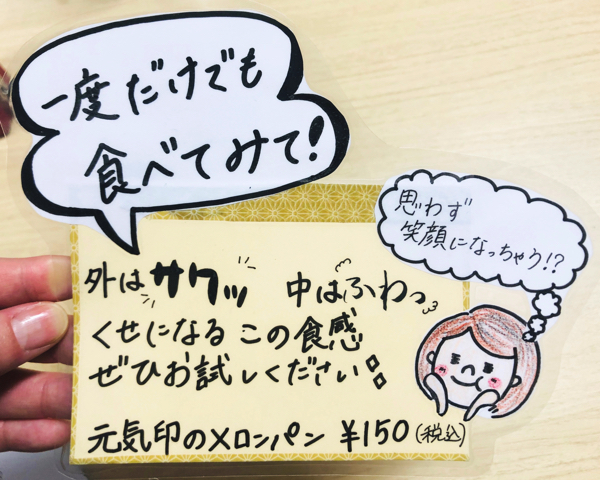 一度だけでも
食べてみて!
思わず
笑顔になっちゃう!?
外はサクッ 中はふわっ
くせになる この食感
ぜひお試しください!!
元気印のメロンパン ¥150(税込)